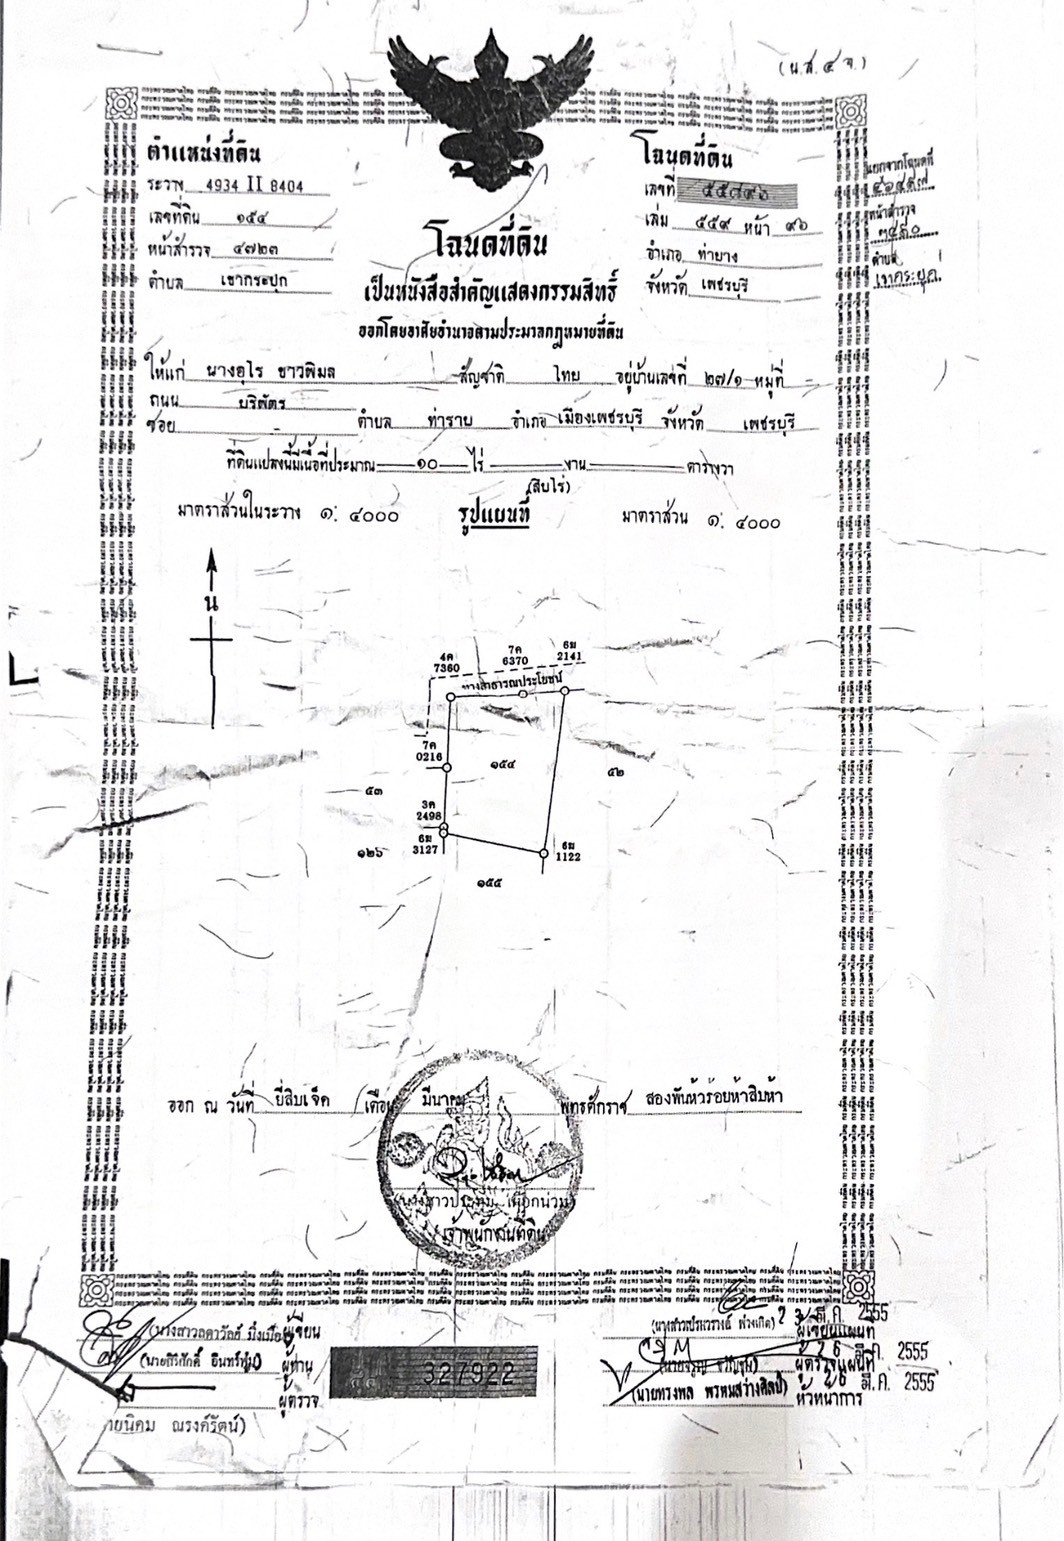 (น.ส.๔ จ.)
ตำแหน่งที่ดิน
ระวาง 4934 II 8404
เลขที่ดิน ๑๕๔
หน้าสำรวจ ๔๗๒๓
ตำบล เขากระปุก
โฉนดที่ดิน
เลขที่ ๕๕๘๙๖
เล่ม ๕๕๙ หน้า ๙๖
อำเภอ ท่ายาง
จังหวัด เพชรบุรี
แยกจากโฉนดที่
หน้าสำรวจ
ตำบล
เขากระปุก
โฉนดที่ดิน
เป็นหนังสือสำคัญแสดงกรรมสิทธิ์
ออกโดยอาศัยอำนาจตามประมวลกฎหมายที่ดิน
ให้แก่ นางอุไร ชาวพิมล สัญชาติ ไทย อยู่บ้านเลขที่ ๒๗/๑ หมู่ที่ -
ถนน บริพัตร
ซอย - ตำบล ท่าราบ อำเภอ เมืองเพชรบุรี จังหวัด เพชรบุรี
ที่ดินแปลงนี้มีเนื้อที่ประมาณ ๑๐ ไร่ งาน ตารางวา
(สิบไร่)
มาตราส่วนในระวาง ๑: ๔๐๐๐ รูปแผนที่ มาตราส่วน ๑: ๔๐๐๐
น
4ค 7360
7ค 6370
6ม 2141
ทางสาธารณประโยชน์
7ค 0216
๑๕๔
๕๒
๕๓
3ค 2498
6ม 3127
๑๒๖
6ม 1122
๑๕๕
ออก ณ วันที่ ยี่สิบเจ็ด เดือน มีนาคม พุทธศักราช สองพันห้าร้อยห้าสิบห้า
เจ้าพนักงานที่ดิน
ผู้เขียน
ผู้ทาน
ผู้ตรวจ
ายนิคม ณรงค์รัตน์)
327922
มี.ค. 2555
ผู้เขียนแผนที่
26 มี.ค. 2555
ผู้ตรวจแผนที่
(นายทรงพล พรหมสว่างศิลป์) 26 มี.ค. 2555
หัวหน้าการ